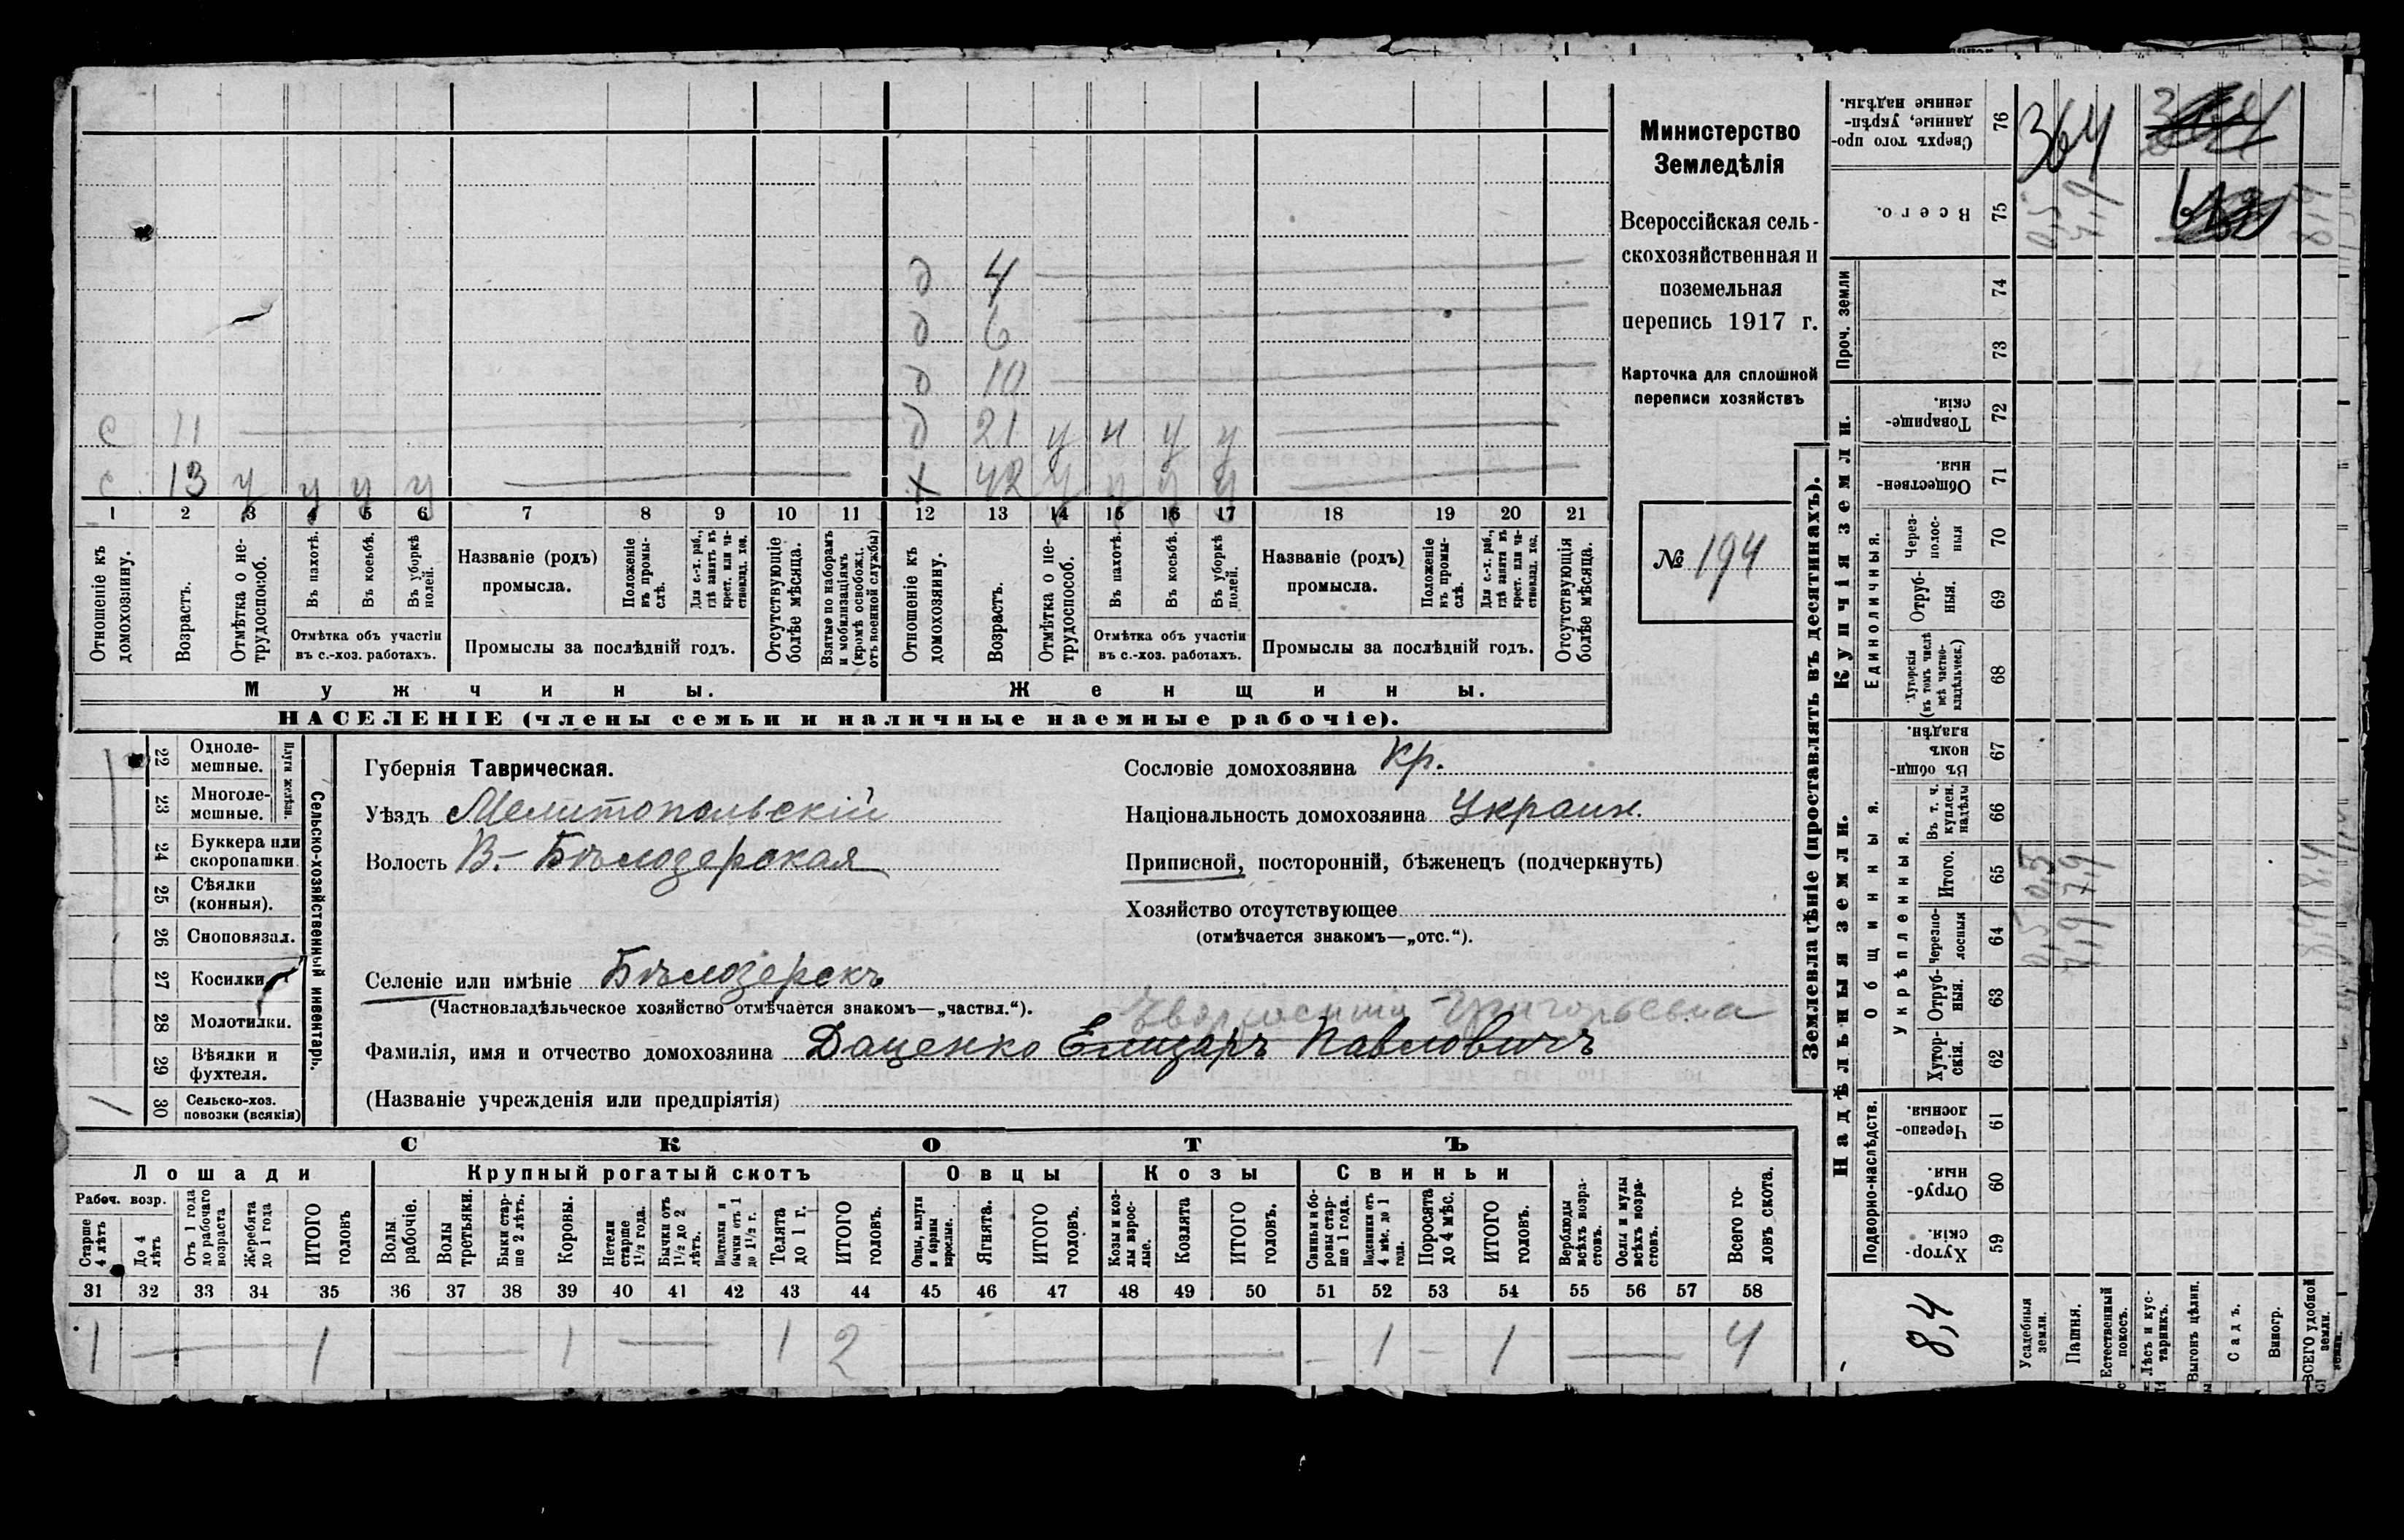 Министерство
Земледѣлія
Всероссійская сель-
скохозяйственная и
поземельная
перепись 1917 г.
Карточка для сплошной
переписи хозяйствъ
№ 194
д 4
д 6
д 10
с 11 д 21 у н у у
с 13 у у у у х 42 у у у у
1 2 3 4 5 6 7 8 9 10 11 12 13 14 15 16 17 18 19 20 21
Отношеніе къ домохозяину.
Возрастъ.
Отмѣтка о не-трудоспособ.
Въ пахотѣ.
Въ косьбѣ.
Въ уборкѣ полей.
Отмѣтка объ участіи
въ с.-хоз. работахъ.
Названіе (родъ)
промысла.
Положеніе въ промы-слѣ.
Для с.-х. раб., гдѣ занятъ въ крест. или ча-стновлад. хоз.
Промыслы за послѣдній годъ.
Отсутствующіе болѣе мѣсяца.
Взятые по наборамъ и мобилизаціямъ (кромѣ освобожд. отъ военной службы)
Отношеніе къ домохозяину.
Возрастъ.
Отмѣтка о не-трудоспособ.
Въ пахотѣ.
Въ косьбѣ.
Въ уборкѣ полей.
Отмѣтка объ участіи
въ с.-хоз. работахъ.
Названіе (родъ)
промысла.
Положеніе въ промы-слѣ.
Для с.-х. раб., гдѣ занята въ крест. или ча-стновлад. хоз.
Промыслы за послѣдній годъ.
Отсутствующія болѣе мѣсяца.
Мужчины. Женщины.
НАСЕЛЕНІЕ (члены семьи и наличные наемные рабочіе).
Сельско-хозяйственный инвентарь.
Плуги желѣзн.
22 Одноле-мешные.
23 Многоле-мешные.
24 Буккера или скоропашки.
25 Сѣялки (конныя).
26 Сноповязал.
27 Косилки
28 Молотилки.
29 Вѣялки и фухтеля.
30 Сельско-хоз. повозки (всякія) 1
Губернія Таврическая.
Уѣздъ Мелитопольскій
Волость В.-Бѣлозерская
Сословіе домохозяина Кр.
Національность домохозяина Украин.
Приписной, посторонній, бѣженецъ (подчеркнуть)
Хозяйство отсутствующее
(отмѣчается знакомъ—„отс.“).
Селеніе или имѣніе Бѣлозерскъ
(Частновладѣльческое хозяйство отмѣчается знакомъ—„частвл.“).
Григорьевна
Фамилія, имя и отчество домохозяина Даценко Елизаръ Павловичъ
(Названіе учрежденія или предпріятія)
СКОТЪ
Лошади Крупный рогатый скотъ Овцы Козы Свиньи
Рабоч. возр.
Старше 4 лѣтъ
До 4 лѣтъ
Отъ 1 года до рабочаго возраста
Жеребята до 1 года
ИТОГО головъ
Волы рабочіе.
Волы третьяки.
Быки стар-ше 2 лѣтъ.
Коровы.
Нетели старше 1½ года.
Бычки отъ 1½ до 2 лѣтъ.
Подтелки и бычки отъ 1 до 1½ г.
Телята до 1 г.
ИТОГО головъ.
Овцы, валухи и бараны взрослые.
Ягнята.
ИТОГО головъ.
Козы и коз-лы взрос-лые.
Козлята
ИТОГО головъ.
Свиньи и бо-ровы стар-ше 1 года.
Подсвинки отъ 4 мѣс. до 1 года.
Поросята до 4 мѣс.
ИТОГО головъ.
Верблюды всѣхъ возра-стовъ.
Ослы и мулы всѣхъ возра-стовъ.
Всего го-ловъ скота.
31 32 33 34 35 36 37 38 39 40 41 42 43 44 45 46 47 48 49 50 51 52 53 54 55 56 57 58
1 — 1 — 1 — 1 2 — — 1 — 1 — 4
Землевладѣніе (проставлять въ десятинахъ).
Надѣльныя земли. Купчія земли. Проч. земли
Подворно-наслѣдств. Общинныя. Укрѣпленныя. Единоличныя.
59 Хутор-скія.
60 Отруб-ныя.
61 Черезпо-лосныя.
62 Хутор-скія.
63 Отруб-ныя.
64 Черезпо-лосныя 0,5 7,9 8,4
65 Итого. 0,5 7,9 8,4
66 Въ т. ч. куплен. надѣлы
67 Въ общи-номъ владѣн.
68 Хуторскія (въ томъ числѣ всѣ частно-владѣльческ.)
69 Отруб-ныя.
70 Через-полос-ныя
71 Обществен-ныя.
72 Товарище-скія.
73
74
75 Всего. 0,5 7,9 8,4
76 Сверхъ того про-данные, укрѣп-ленные надѣлы. 364
8,4
Усадебныя земли.
Пашня.
Естественный покосъ.
Лѣсъ и кус-тарникъ.
Выгонъ цѣлин.
Садъ.
Виногр.
ВСЕГО удобной земли.